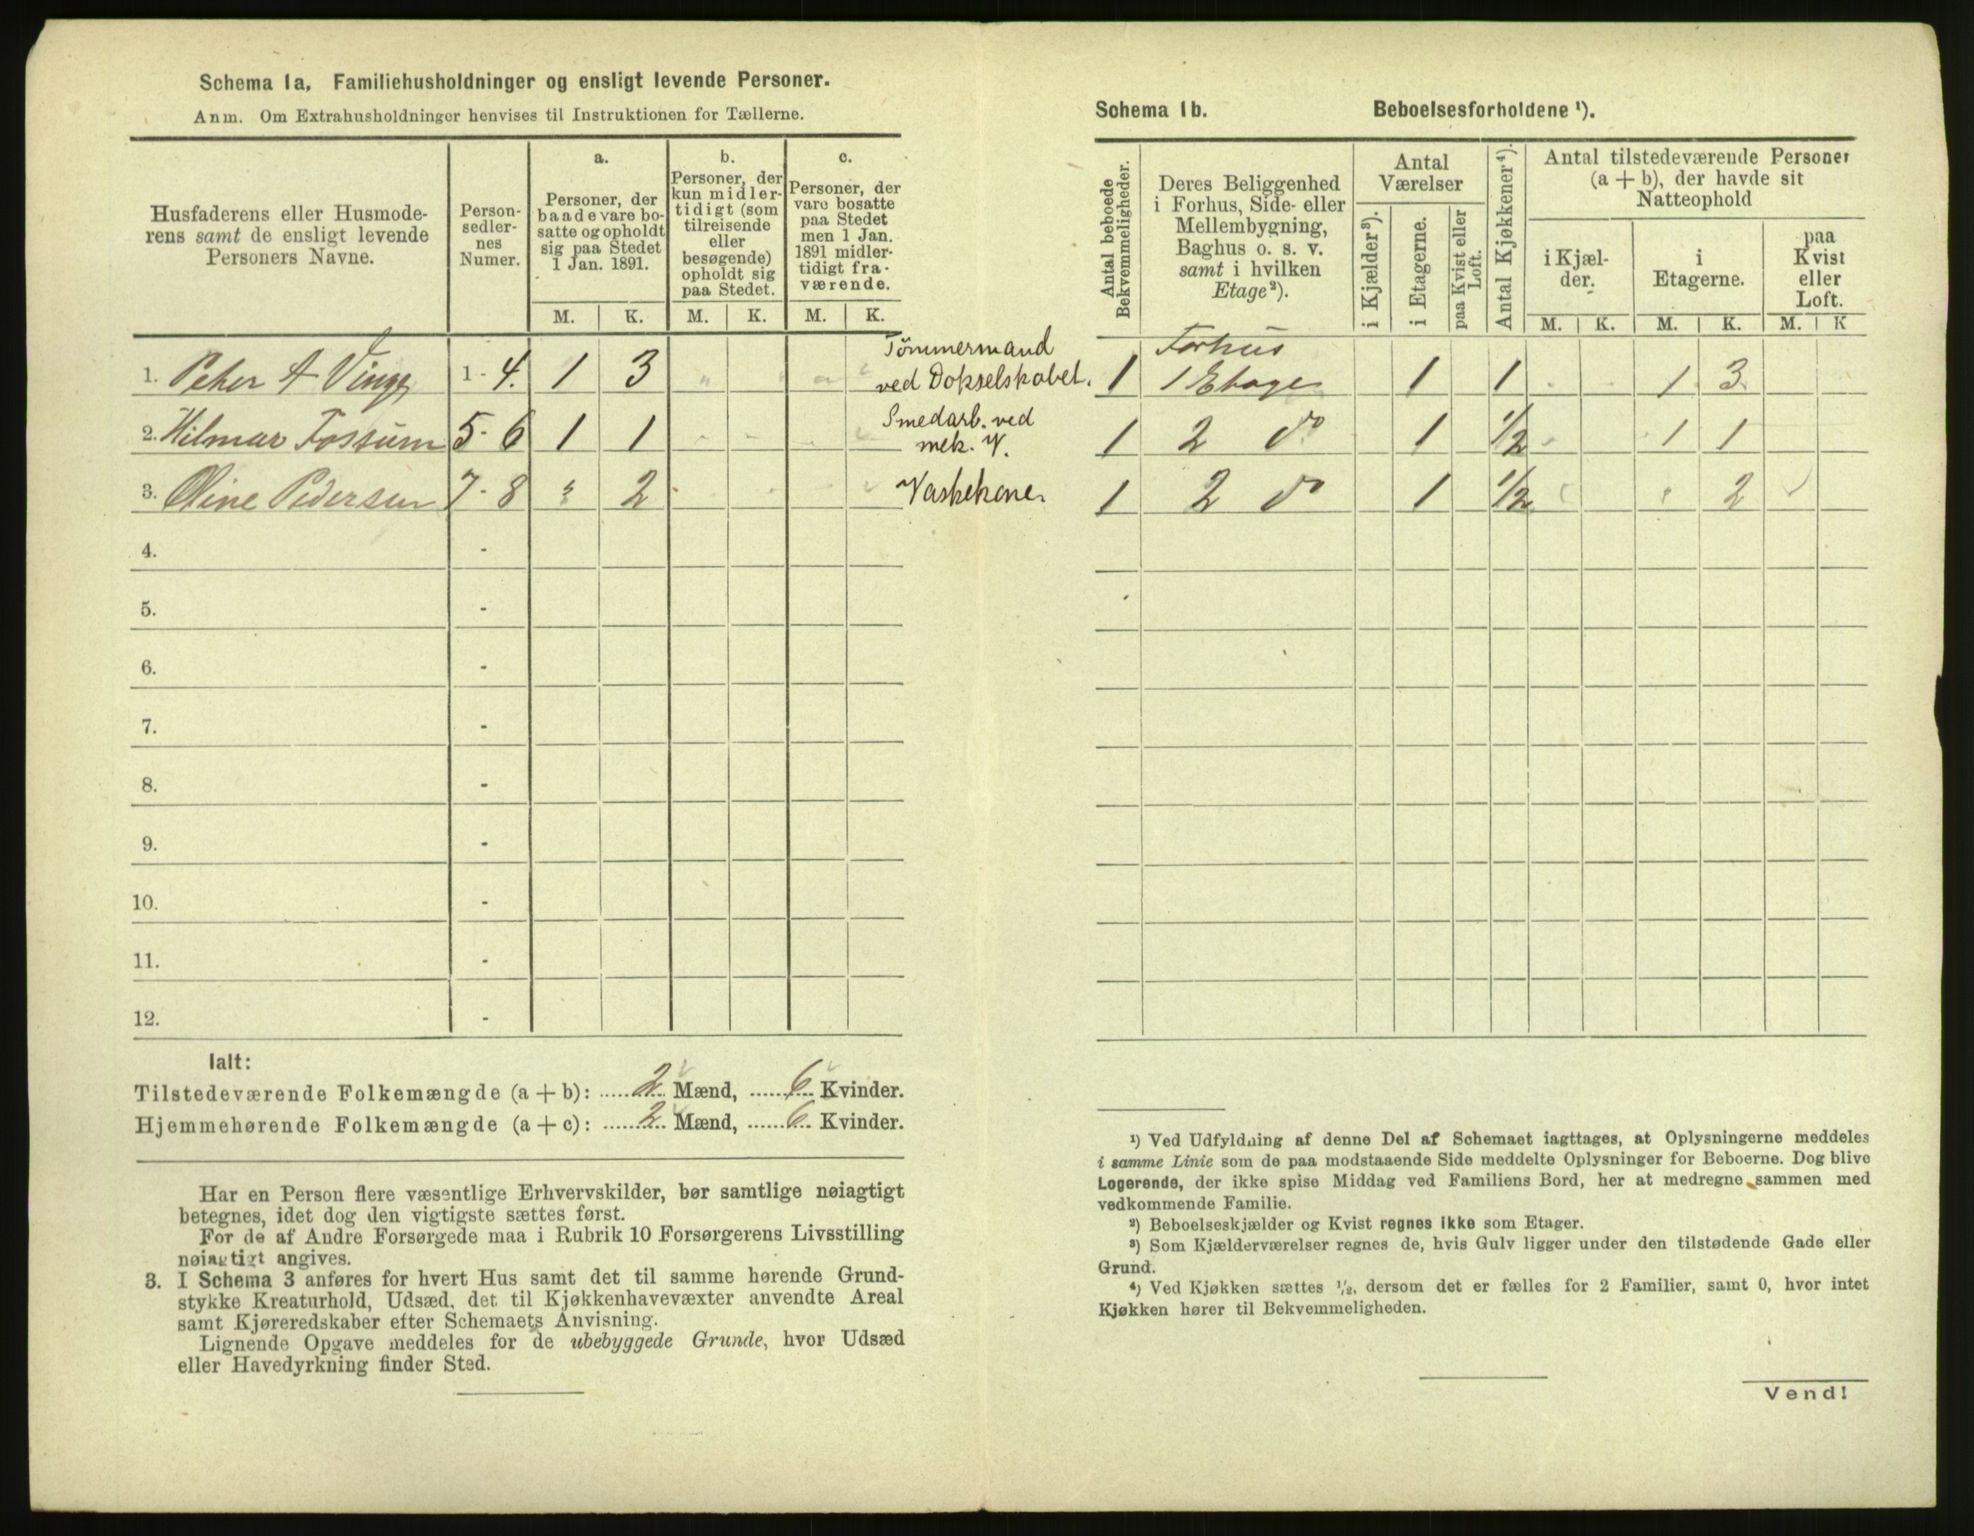 Schema 1a. Familiehusholdninger og ensligt levende Personer.
Anm. Om Extrahusholdninger henvises til Instruktionen for Tællerne.
Husfaderens eller Husmode-
rens samt de ensligt levende
Personers Navne.
Person-
sedler-
nes
Numer.
a.
Personer, der
baade vare bo-
satte og opholdt
sig paa Stedet
1 Jan. 1891.
b.
Personer, der
kun midler-
tidigt (som
tilreisende
eller
besøgende)
opholdt sig
paa Stedet.
c.
Personer, der
vare bosatte
paa Stedet
men 1 Jan.
1891 midler-
tidigt fra-
værende.
M. K. M. K. M. K.
1. Peter A Vinge 1 - 4. 1 3 Tömmermand
ved Dokselskabet.
2. Hilmar Fossum 5 - 6 1 1 Smedarb. ved
mek. V.
3. Oline Pedersen 7 - 8 " 2 Vaskekone.
4. -
5. -
6. -
7. -
8. -
9. -
10. -
11. -
12. -
Ialt:
Tilstedeværende Folkemængde (a + b): 2 Mænd, 6 Kvinder.
Hjemmehørende Folkemængde (a + c): 2 Mænd, 6 Kvinder.
Har en Person flere væsentlige Erhvervskilder, bør samtlige nøiagtigt
betegnes, idet dog den vigtigste sættes først.
For de af Andre Forsørgede maa i Rubrik 10 Forsørgerens Livsstilling
nøiagtigt angives.
3. I Schema 3 anføres for hvert Hus samt det til samme hørende Grund-
stykke Kreaturhold, Udsæd, det til Kjøkkenhavevæxter anvendte Areal
samt Kjøreredskaber efter Schemaets Anvisning.
Lignende Opgave meddeles for de ubebyggede Grunde, hvor Udsæd
eller Havedyrkning finder Sted.
Schema 1b. Beboelsesforholdene ¹).
Antal beboede
Bekvemmeligheder.
Deres Beliggenhed
i Forhus, Side- eller
Mellembygning,
Baghus o. s. v.
samt i hvilken
Etage²).
Antal
Værelser
i Kjælder³).
i Etagerne.
paa Kvist eller
Loft.
Antal Kjøkkener⁴).
Antal tilstedeværende Personer
(a + b), der havde sit
Natteophold
i Kjæl-
der.
i
Etagerne.
paa
Kvist
eller
Loft.
M. K. M. K. M. K
1 Forhus
1 Etage 1 1 1 3
1 2 do 1 1/2 1 1
1 2 do 1 1/2 2
¹) Ved Udfyldning af denne Del af Schemaet iagttages, at Oplysningerne meddeles
i samme Linie som de paa modstaaende Side meddelte Oplysninger for Beboerne. Dog blive
Logerende, der ikke spise Middag ved Familiens Bord, her at medregne sammen med
vedkommende Familie.
²) Beboelseskjælder og Kvist regnes ikke som Etager.
³) Som Kjælderværelser regnes de, hvis Gulv ligger under den tilstødende Gade eller
Grund.
⁴) Ved Kjøkken sættes ½, dersom det er fælles for 2 Familier, samt 0, hvor intet
Kjøkken hører til Bekvemmeligheden.
Vend!